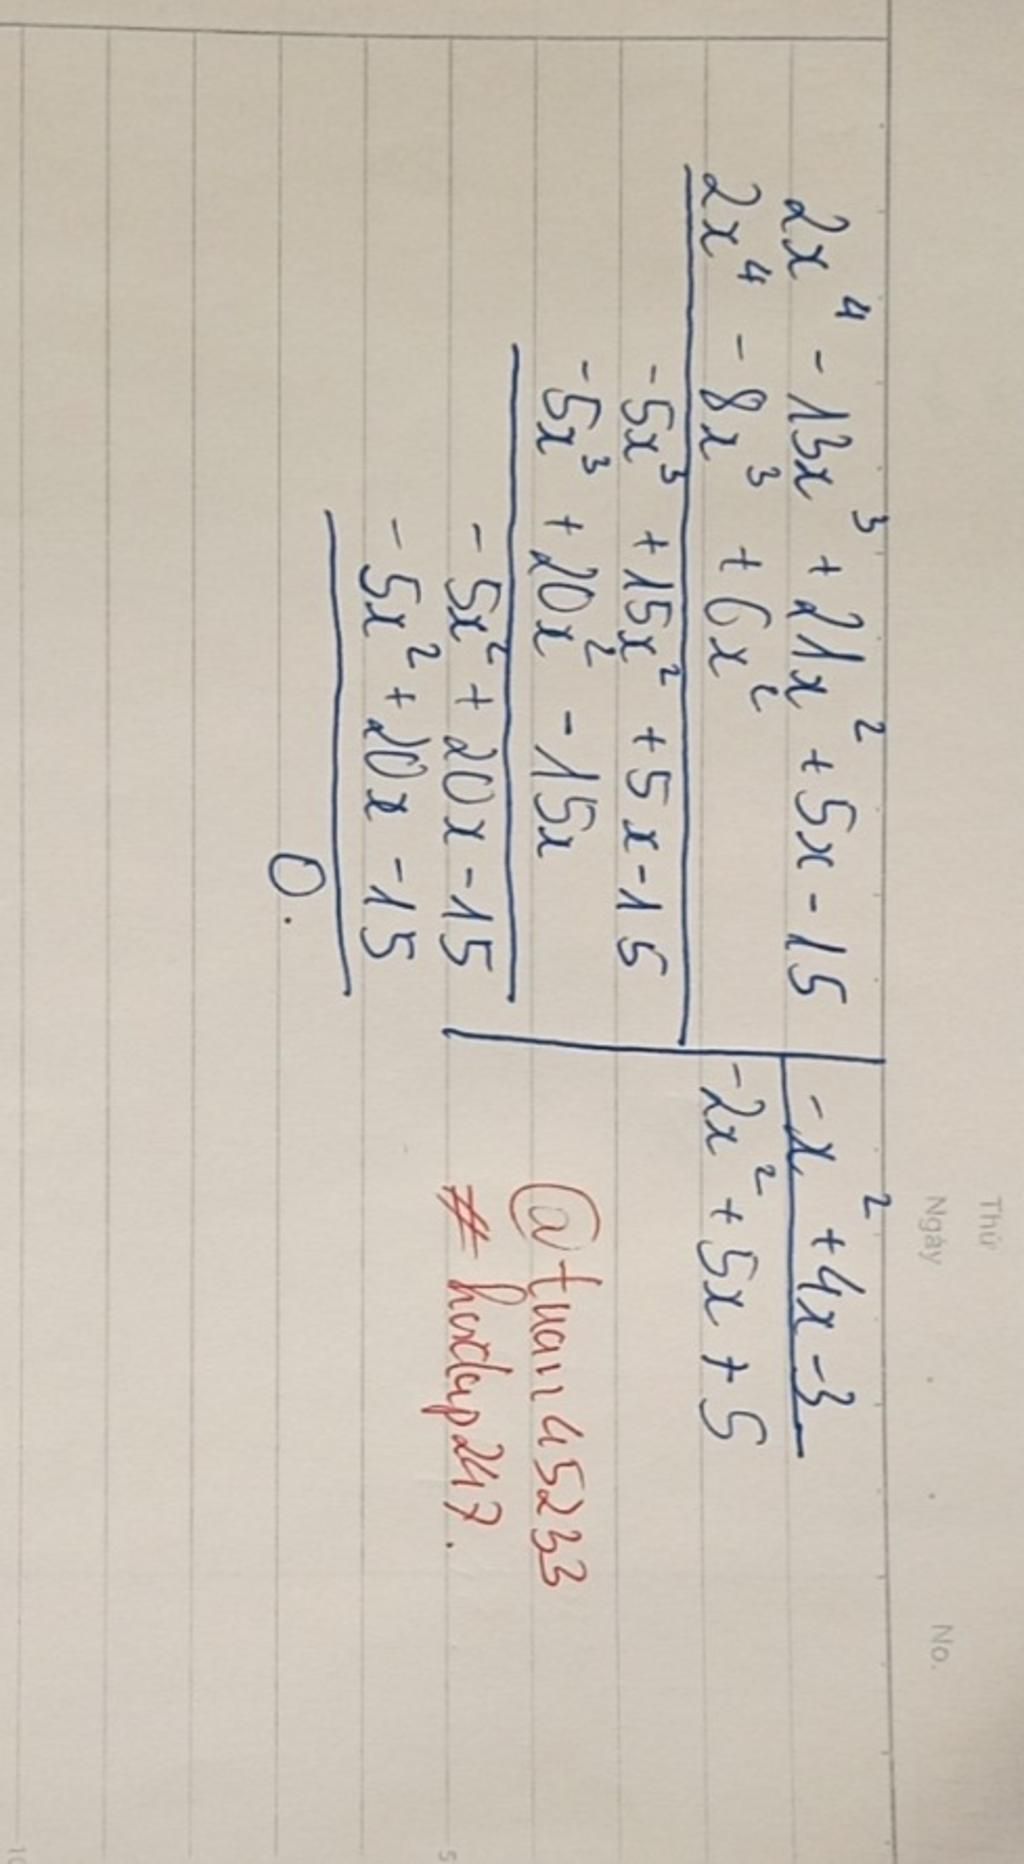 Thứ
Ngày
No.
2x⁴ - 13x³ + 21x² + 5x - 15 | -x² + 4x - 3
2x⁴ - 8x³ + 6x² | -2x² + 5x + 5
-5x³ + 15x² + 5x - 15
-5x³ + 20x² - 15x
-5x² + 20x - 15
-5x² + 20x - 15
0.
@tuan45233
#hoidap247.
5
10